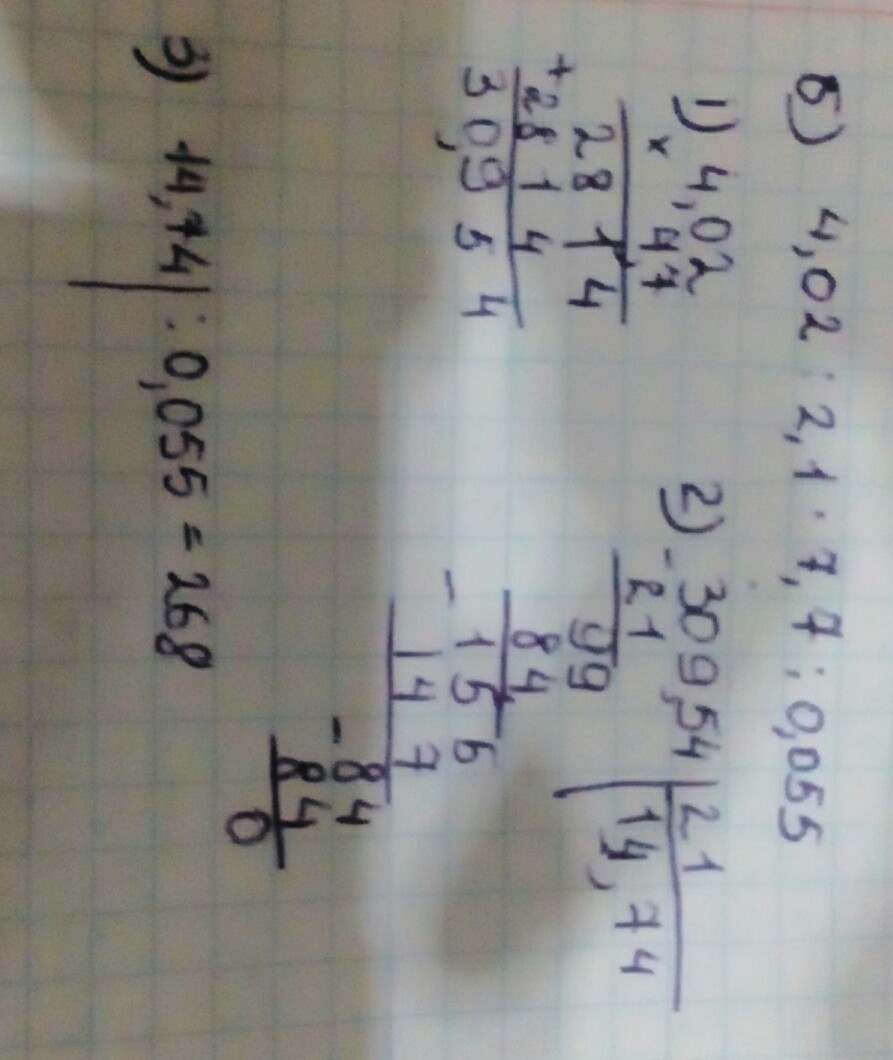 б) 4,02 : 2,1 · 7,7 : 0,055
1) 4,02
× 77
2814
+2814
30,954
2) 309,54 | 21
- 21
14,74
99
84
- 156
147
- 84
84
0
3) 14,74 : 0,055 = 268